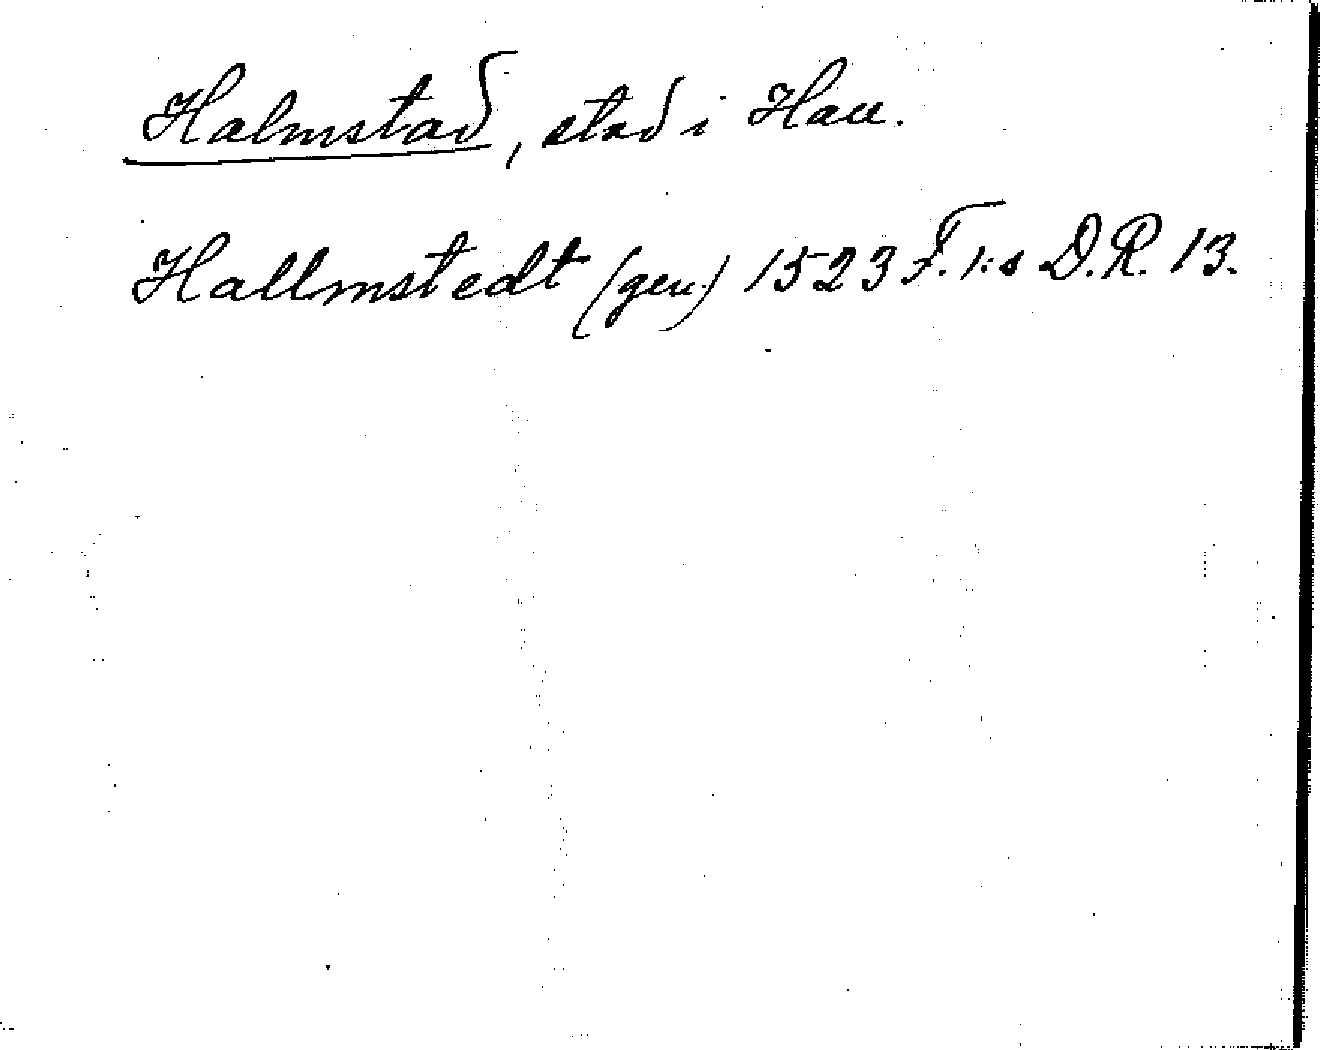 Halmstad, stad i Hall.
Hallmstedt (gen.) 1523 F.1:s D.R. 13.